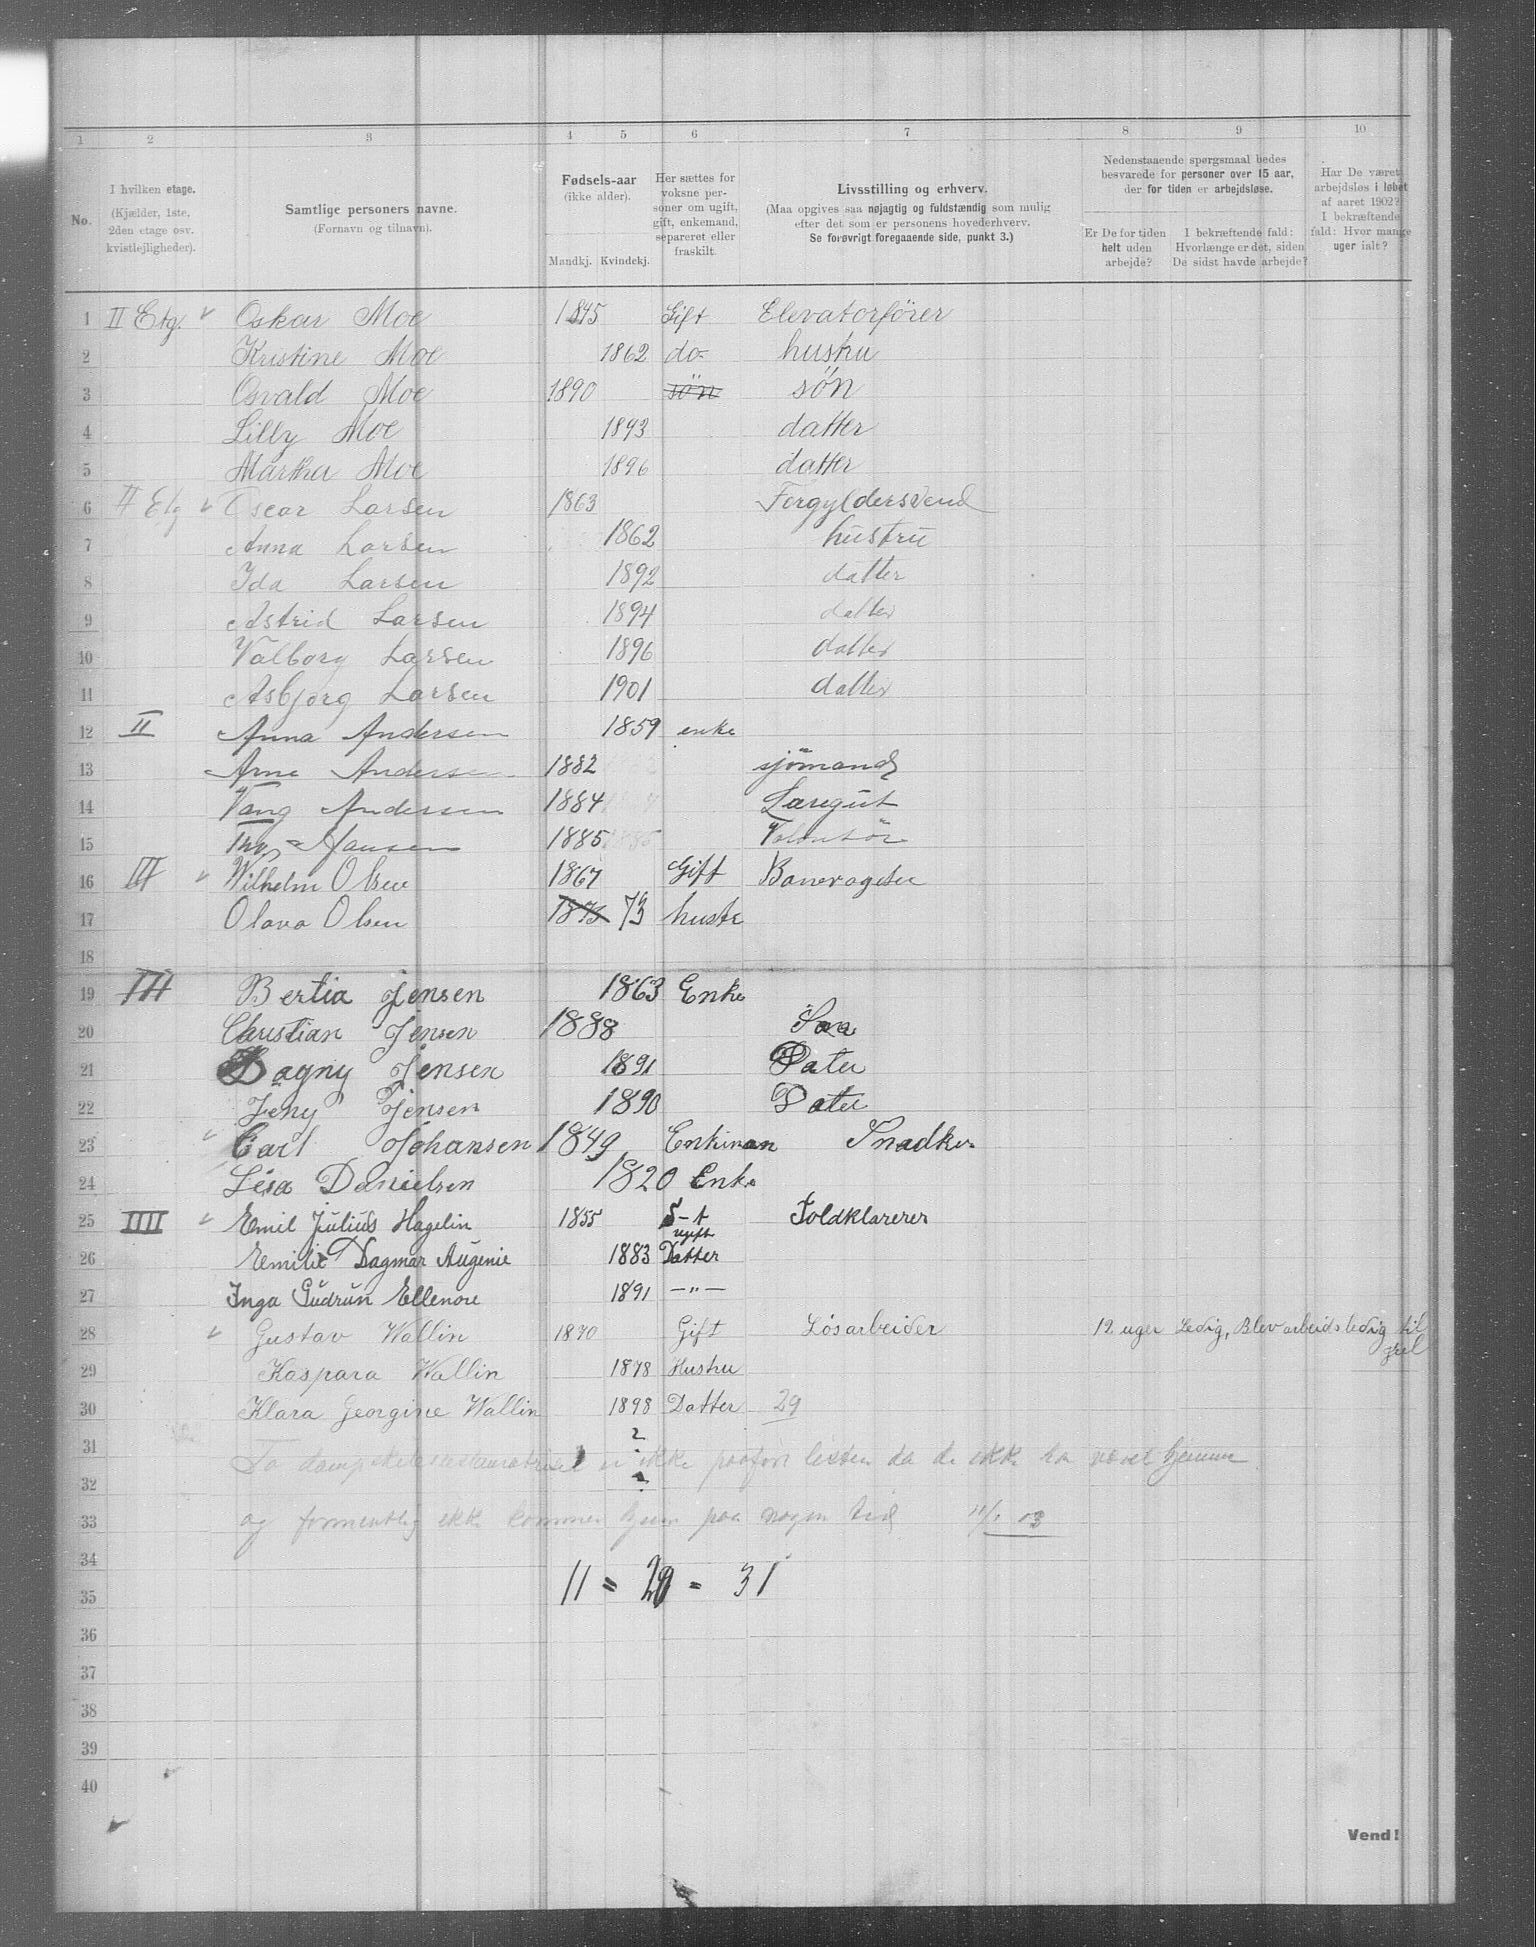 1 2 3 4 5 6 7 8 9 10
No.
I hvilken etage.
(Kjælder, 1ste,
2den etage osv.
kvistlejligheder).
Samtlige personers navne.
(Fornavn og tilnavn).
Fødsels-aar
(ikke alder).
Mandkj. Kvindekj.
Her sættes for
voksne per-
soner om ugift,
gift, enkemand,
separeret eller
fraskilt.
Livsstilling og erhverv.
(Maa opgives saa nøjagtig og fuldstændig som mulig
efter det som er personens hovederhverv.
Se forøvrigt foregaaende side, punkt 3.)
Nedenstaaende spørgsmaal bedes
besvarede for personer over 15 aar,
der for tiden er arbejdsløse.
Er De for tiden
helt uden
arbejde?
I bekræftende fald:
Hvorlænge er det, siden
De sidst havde arbejde?
Har De været
arbejdsløs i løbet
af aaret 1902?
I bekræftende
fald: Hvor mange
uger ialt?
1 II Etg. Oskar Moe 1845 Gift Elevatorfører
2 Kristine Moe 1862 do- hustru
3 Osvald Moe 1890 søn søn
4 Lilly Moe 1893 datter
5 Martha Moe 1896 datter
6 II Etg Oscar Larsen 1863 Forgyldersvend
7 Anna Larsen 1862 hustru
8 Ida Larsen 1892 datter
9 Astrid Larsen 1894 datter
10 Valborg Larsen 1896 datter
11 Asbjørg Larsen 1901 datter
12 II Anna Andersen 1859 enke
13 Arne Andersen 1882 sjømand
14 Vang Andersen 1884 Læregut
15 Hansen 1885 Volontør
16 III Wilhelm Olsen 1867 Gift Banevogter
17 Olava Olsen 1873 73 hustr
18
19 III Bertia Jensen 1863 Enke
20 Christian Jensen 1888
21 Dagny Jensen 1891 Dater
22 Jeny Jensen 1890 Dater
23 Carl Johansen 1849 Enkiman Snedker
24 Lisa Danielsen 1820 Enke
25 IIII Emil Julius Hagelin 1855 S-t Toldklarerer
ugift
26 Emilie Dagmar Augenie 1883 Datter
27 Inga Gudrun Ellenore 1891 —"—
28 Gustav Wallin 1870 Gift Løsarbeider 12 uger Ledig, Blev arbeidsledig til
jul
29 Kaspara Wallin 1878 Hustru
30 Klara Georgine Wallin 1898 Datter 29
2
31 To ikke paaført listen da de ikke har været hjemme
32
33 og formentlig ikke kommer hjem paa nogen tid 11/1 03
34
11 = 20 = 31
35
36
37
38
39
40
Vend!